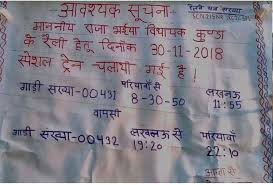 आवश्यक सूचना
माननीय राजा भईया विधायक कुण्डा
के रैली हेतू दिनांक 30-11-2018
स्पेशल ट्रेन चलाया गई है।
गाडी संख्या-00431 परियावाँ से 8-30-50 लखनऊ 11:55
वापसी
गाडी संख्या-00432 लखनऊ से 19:20 परियावाँ 22:10